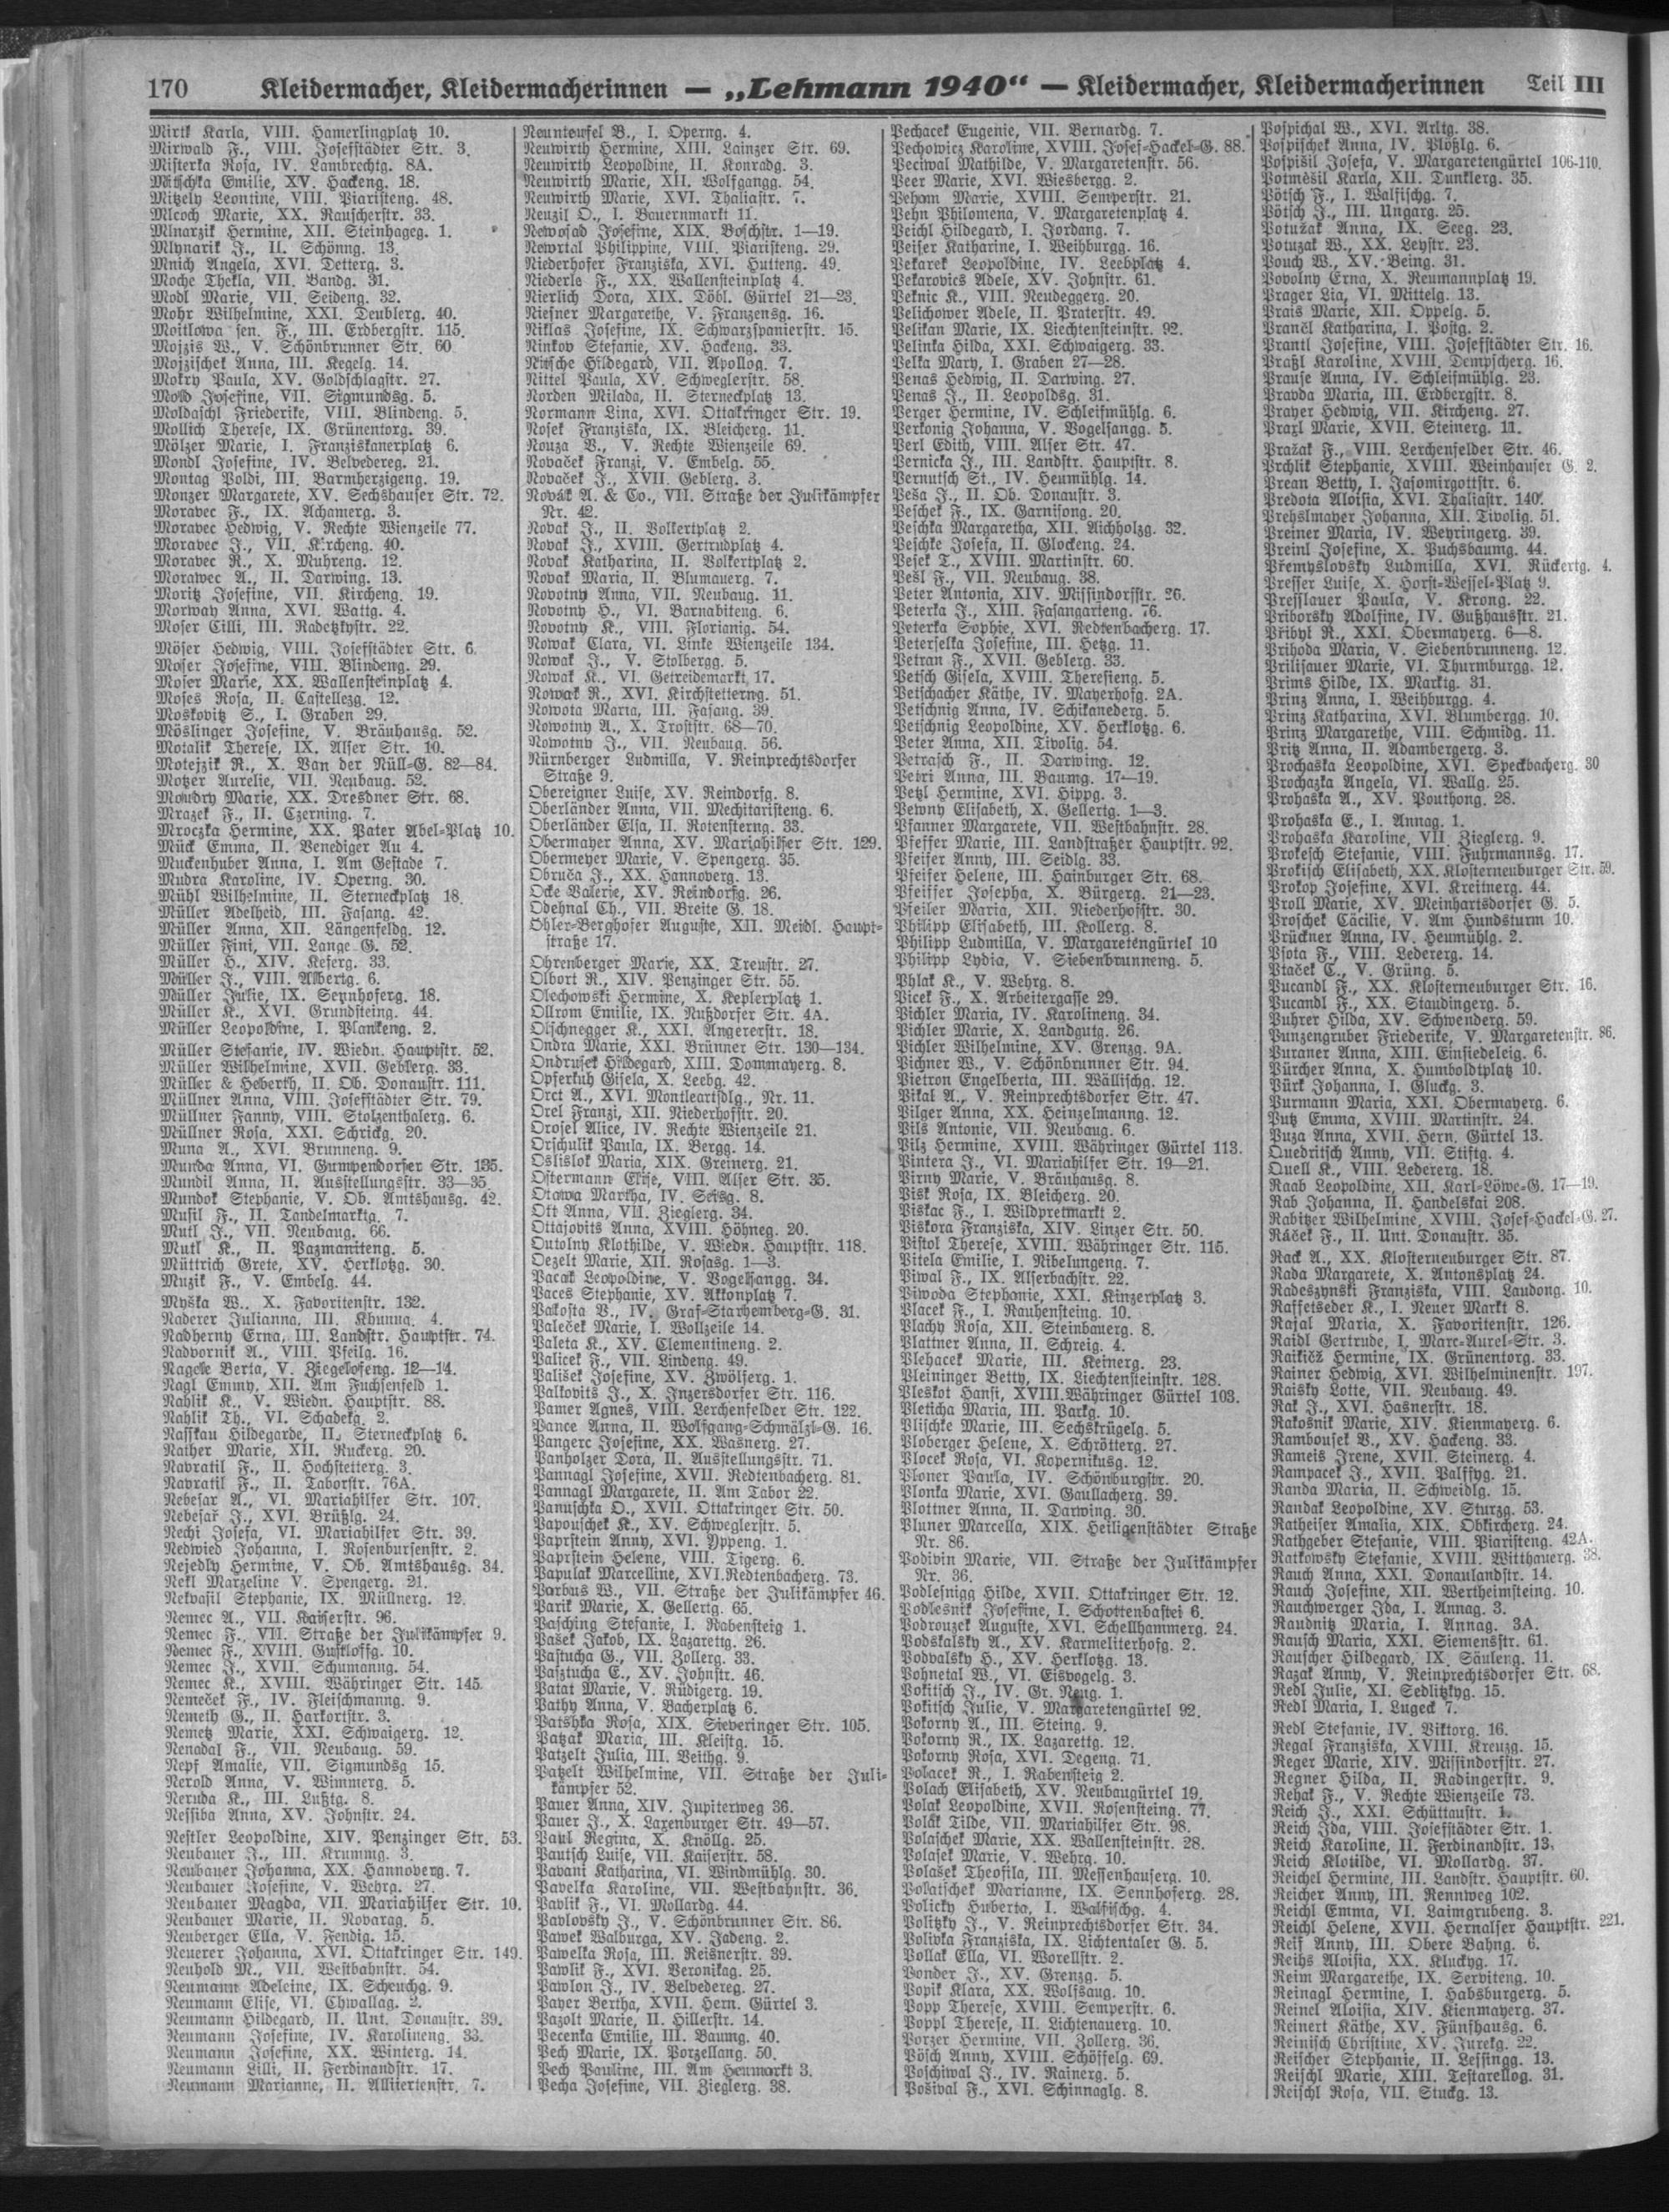 170 Kleidermacher, Kleidermacherinnen — „Lehmann 1940“ — Kleidermacher, Kleidermacherinnen Teil III
Mirtl Karla, VIII. Hamerlingplatz 10.
Mirwald F., VIII. Josefstädter Str. 3.
Misterka Rosa, IV. Lambrechtg. 8A.
Mitschka Emilie, XV. Hackeng. 18.
Mitzely Leontine, VIII. Piaristeng. 48.
Mlcoch Marie, XX. Rauscherstr. 33.
Mlnarzik Hermine, XII. Steinhageg. 1.
Mlynarik J., II. Schönng. 13.
Mnich Angela, XVI. Detterg. 3.
Moche Thekla, VII. Bandg. 31.
Modl Marie, VII. Seideng. 32.
Mohr Wilhelmine, XXI. Deublerg. 40.
Moitlowa sen. F., III. Erdbergstr. 115.
Mojzis W., V. Schönbrunner Str. 60
Mojzischek Anna, III. Kegelg. 14.
Mokry Paula, XV. Goldschlagstr. 27.
Mold Josefine, VII. Sigmundsg. 5.
Moldaschl Friederike, VIII. Blindeng. 5.
Mollich Therese, IX. Grünentorg. 39.
Mölzer Marie, I. Franziskanerplatz 6.
Mondl Josefine, IV. Belvedereg. 21.
Montag Poldi, III. Barmherzigeng. 19.
Monzer Margarete, XV. Sechshauser Str. 72.
Moravec F., IX. Achamerg. 3.
Moravec Hedwig, V. Rechte Wienzeile 77.
Moravec J., VII. Kircheng. 40.
Moravec R., X. Muhreng. 12.
Morawec A., II. Darwing. 13.
Moritz Josefine, VII. Kircheng. 19.
Morway Anna, XVI. Wattg. 4.
Moser Cilli, III. Radetzkystr. 22.
Möser Hedwig, VIII. Josefstädter Str. 6.
Moser Josefine, VIII. Blindeng. 29.
Moser Marie, XX. Wallensteinplatz 4.
Moses Rosa, II. Castellezg. 12.
Moskovitz S., I. Graben 29.
Möslinger Josefine, V. Bräuhausg. 52.
Motalik Therese, IX. Alser Str. 10.
Motejzik R., X. Van der Nüll-G. 82—84.
Motzer Aurelie, VII. Neubaug. 52.
Moudry Marie, XX. Dresdner Str. 68.
Mrazek F., II. Czerning. 7.
Mroczka Hermine, XX. Pater Abel-Platz 10.
Mück Emma, II. Venediger Au 4.
Muckenhuber Anna, I. Am Gestade 7.
Mudra Karoline, IV. Operng. 30.
Mühl Wilhelmine, II. Sterneckplatz 18.
Müller Adelheid, III. Fasang. 42.
Müller Anna, XII. Längenfeldg. 12.
Müller Fini, VII. Lange G. 52.
Müller H., XIV. Keferg. 33.
Müller J., VIII. Albertg. 6.
Müller Julie, IX. Sennhoferg. 18.
Müller K., XVI. Grundsteing. 44.
Müller Leopoldine, I. Plankeng. 2.
Müller Stefanie, IV. Wiedn. Hauptstr. 52.
Müller Wilhelmine, XVII. Geblerg. 33.
Müller & Heberth, II. Ob. Donaustr. 111.
Müllner Anna, VIII. Josefstädter Str. 79.
Müllner Fanny, VIII. Stolzenthalerg. 6.
Müllner Rosa, XXI. Schrickg. 20.
Muna A., XVI. Brunneng. 9.
Munda Anna, VI. Gumpendorfer Str. 135.
Mundil Anna, II. Ausstellungsstr. 33—35.
Mundok Stephanie, V. Ob. Amtshausg. 42.
Musil F., II. Tandelmarktg. 7.
Mutl J., VII. Neubaug. 66.
Mutl K., II. Pazmaniteng. 5.
Müttrich Grete, XV. Herklotzg. 30.
Muzik F., V. Embelg. 44.
Myška W., X. Favoritenstr. 132.
Naderer Julianna, III. Khunng. 4.
Nadherny Erna, III. Landstr. Hauptstr. 74.
Nadvornik A., VIII. Pfeilg. 16.
Nagele Berta, V. Ziegelofeng. 12—14.
Nagl Emmy, XII. Am Fuchsenfeld 1.
Nahlik K., V. Wiedn. Hauptstr. 88.
Nahlik Th., VI. Schadekg. 2.
Nasskau Hildegarde, II. Sterneckplatz 6.
Nather Marie, XII. Ruckerg. 20.
Navratil F., II. Hochstetterg. 3.
Navratil F., II. Taborstr. 76A.
Nebesar A., VI. Mariahilfer Str. 107.
Nebesař J., XVI. Brüßlg. 24.
Nechi Josefa, VI. Mariahilfer Str. 39.
Nedwied Johanna, I. Rosenbursenstr. 2.
Nejedly Hermine, V. Ob. Amtshausg. 34.
Nekl Marzeline V. Spengerg. 21.
Nekvasil Stephanie, IX. Müllnerg. 12.
Nemec A., VII. Kaiserstr. 96.
Nemec F., VII. Straße der Julikämpfer 9.
Nemec F., XVIII. Gustloffg. 10.
Nemec J., XVII. Schumanng. 54.
Nemec K., XVIII. Währinger Str. 145.
Nemeček F., IV. Fleischmanng. 9.
Nemeth G., II. Harkortstr. 3.
Nemetz Marie, XXI. Schwaigerg. 12.
Nenadal F., VII. Neubaug. 59.
Nepf Amalie, VII. Sigmundsg 15.
Nerold Anna, V. Wimmerg. 5.
Neruda K., III. Lußtg. 8.
Nessiba Anna, XV. Johnstr. 24.
Nestler Leopoldine, XIV. Penzinger Str. 53.
Neubauer J., III. Krummg. 3.
Neubauer Johanna, XX. Hannoverg. 7.
Neubauer Josefine, V. Wehrg. 27.
Neubauer Magda, VII. Mariahilfer Str. 10.
Neubauer Marie, II. Novarag. 5.
Neuberger Ella, V. Fendig. 15.
Neuerer Johanna, XVI. Ottakringer Str. 149.
Neuhold M., VII. Westbahnstr. 54.
Neumann Adeleine, IX. Scheuchg. 9.
Neumann Elise, VI. Chwallag. 2.
Neumann Hildegard, II. Unt. Donaustr. 39.
Neumann Josefine, IV. Karolineng. 33.
Neumann Josefine, XX. Winterg. 14.
Neumann Lilli, II. Ferdinandstr. 17.
Neumann Marianne, II. Alliiertenstr. 7.
Neunteufel B., I. Operng. 4.
Neuwirth Hermine, XIII. Lainzer Str. 69.
Neuwirth Leopoldine, II. Konradg. 3.
Neuwirth Marie, XII. Wolfgangg. 54.
Neuwirth Marie, XVI. Thaliastr. 7.
Neuzil O., I. Bauernmarkt 11.
Newosad Josefine, XIX. Boschstr. 1—19.
Newrtal Philippine, VIII. Piaristeng. 29.
Niederhofer Franziska, XVI. Hutteng. 49.
Niederle F., XX. Wallensteinplatz 4.
Nierlich Dora, XIX. Döbl. Gürtel 21—23.
Niesner Margarethe, V. Franzensg. 16.
Niklas Josefine, IX. Schwarzspanierstr. 15.
Ninkov Stefanie, XV. Hackeng. 33.
Nitsche Hildegard, VII. Apollog. 7.
Nittel Paula, XV. Schweglerstr. 58.
Norden Milada, II. Sterneckplatz 13.
Normann Lina, XVI. Ottakringer Str. 19.
Nosek Franziska, IX. Bleicherg. 11.
Nouza B., V. Rechte Wienzeile 69.
Novaček Franzi, V. Embelg. 55.
Novaček J., XVII. Geblerg. 3.
Novák A. & Co., VII. Straße der Julikämpfer
Nr. 42.
Novak J., II. Volkertplatz 2.
Novak J., XVIII. Gertrudplatz 4.
Novak Katharina, II. Volkertplatz 2.
Novak Maria, II. Blumauerg. 7.
Novotny Anna, VII. Neubaug. 11.
Novotny H., VI. Barnabiteng. 6.
Novotny K., VIII. Florianig. 54.
Nowak Clara, VI. Linke Wienzeile 134.
Nowak J., V. Stolbergg. 5.
Nowak K., VI. Getreidemarkt 17.
Nowak R., XVI. Kirchstetterng. 51.
Nowota Maria, III. Fasang. 39.
Nowotny A., X. Troststr. 68—70.
Nowotny J., VII. Neubaug. 56.
Nürnberger Ludmilla, V. Reinprechtsdorfer
Straße 9.
Obereigner Luise, XV. Reindorfg. 8.
Oberländer Anna, VII. Mechitaristeng. 6.
Oberländer Elsa, II. Rotensterng. 33.
Obermayer Anna, XV. Mariahilfer Str. 129.
Obermeyer Marie, V. Spengerg. 35.
Obruča J., XX. Hannoverg. 13.
Ocke Valerie, XV. Reindorfg. 26.
Odehnal Ch., VII. Breite G. 18.
Öhler-Berghofer Auguste, XII. Meidl. Haupt-
straße 17.
Ohrenberger Marie, XX. Treustr. 27.
Olbort R., XIV. Penzinger Str. 55.
Olechowski Hermine, X. Keplerplatz 1.
Ollrom Emilie, IX. Nußdorfer Str. 4A.
Olschnegger K., XXI. Angererstr. 18.
Ondra Marie, XXI. Brünner Str. 130—134.
Ondrusek Hildegard, XIII. Dommayerg. 8.
Opferkuh Gisela, X. Leebg. 42.
Orct A., XVI. Montleartsdlg., Nr. 11.
Orel Franzi, XII. Niederhofstr. 20.
Orosel Alice, IV. Rechte Wienzeile 21.
Orschulik Paula, IX. Bergg. 14.
Oslislok Maria, XIX. Greinerg. 21.
Ostermann Elise, VIII. Alser Str. 35.
Otawa Martha, IV. Seisg. 8.
Ott Anna, VII. Zieglerg. 34.
Ottajovits Anna, XVIII. Höhneg. 20.
Outolny Klothilde, V. Wiedn. Hauptstr. 118.
Oezelt Marie, XII. Rosasg. 1—3.
Pacak Leopoldine, V. Vogelsangg. 34.
Paces Stephanie, XV. Akkonplatz 7.
Pakosta B., IV. Graf-Starhemberg-G. 31.
Paleček Marie, I. Wollzeile 14.
Paleta K., XV. Clementineng. 2.
Palicek F., VII. Lindeng. 49.
Palisek Josefine, XV. Zwölferg. 1.
Palkovits J., X. Inzersdorfer Str. 116.
Pamer Agnes, VIII. Lerchenfelder Str. 122.
Pance Anna, II. Wolfgang-Schmälzl-G. 16.
Pangerc Josefine, XX. Wasnerg. 27.
Panholzer Dora, II. Ausstellungsstr. 71.
Pannagl Josefine, XVII. Redtenbacherg. 81.
Pannagl Margarete, II. Am Tabor 22.
Panuschka O., XVII. Ottakringer Str. 50.
Papouschek K., XV. Schweglerstr. 5.
Paprstein Anny, XVI. Yppeng. 1.
Paprstein Helene, VIII. Tigerg. 6.
Papulak Marcelline, XVI.Redtenbacherg. 73.
Parbus W., VII. Straße der Julikämpfer 46.
Parik Marie, X. Gellertg. 65.
Pasching Stefanie, I. Rabensteig 1.
Pašek Jakob, IX. Lazarettg. 26.
Pastucha G., VII. Zollerg. 33.
Pasztucha E., XV. Johnstr. 46.
Patat Marie, V. Rüdigerg. 19.
Pathy Anna, V. Bacherplatz 6.
Patshka Rosa, XIX. Sieveringer Str. 105.
Patzak Maria, III. Kleistg. 15.
Patzelt Julia, III. Veithg. 9.
Patzelt Wilhelmine, VII. Straße der Juli-
kämpfer 52.
Pauer Anna, XIV. Jupiterweg 36.
Pauer J., X. Laxenburger Str. 49—57.
Paul Regina, X. Knöllg. 25.
Pautsch Luise, VII. Kaiserstr. 58.
Pavani Katharina, VI. Windmühlg. 30.
Pavelka Karoline, VII. Westbahnstr. 36.
Pavlik F., VI. Mollardg. 44.
Pavlovsky J., V. Schönbrunner Str. 86.
Pawek Walburga, XV. Jadeng. 2.
Pawelka Rosa, III. Reisnerstr. 39.
Pawlik F., XVI. Veronikag. 25.
Pawlon J., IV. Belvedereg. 27.
Payer Bertha, XVII. Hern. Gürtel 3.
Pazolt Marie, II. Hillerstr. 14.
Pecenka Emilie, III. Baumg. 40.
Pech Marie, IX. Porzellang. 50.
Pech Pauline, III. Am Heumarkt 3.
Pecha Josefine, VII. Zieglerg. 38.
Pechacek Eugenie, VII. Bernardg. 7.
Pechowicz Karoline, XVIII. Josef-Hackel-G. 88.
Peciwal Mathilde, V. Margaretenstr. 56.
Peer Marie, XVI. Wiesbergg. 2.
Peham Marie, XVIII. Semperstr. 21.
Pehn Philomena, V. Margaretenplatz 4.
Peichl Hildegard, I. Jordang. 7.
Peiser Katharine, I. Weihburgg. 16.
Pekarek Leopoldine, IV. Leebplatz 4.
Pekarovics Adele, XV. Johnstr. 61.
Peknic K., VIII. Neudeggerg. 20.
Pelichower Adele, II. Praterstr. 49.
Pelikan Marie, IX. Liechtensteinstr. 92.
Pelinka Hilda, XXI. Schwaigerg. 33.
Pelka Mary, I. Graben 27—28.
Penas Hedwig, II. Darwing. 27.
Penas J., II. Leopoldsg. 31.
Perger Hermine, IV. Schleifmühlg. 6.
Perkonig Johanna, V. Vogelsangg. 5.
Perl Edith, VIII. Alser Str. 47.
Pernicka J., III. Landstr. Hauptstr. 8.
Pernutsch St., IV. Heumühlg. 14.
Peša J., II. Ob. Donaustr. 3.
Peschek F., IX. Garnisong. 20.
Peschka Margaretha, XII. Aichholzg. 32.
Peschke Josefa, II. Glockeng. 24.
Pesek T., XVIII. Martinstr. 60.
Pesl F., VII. Neubaug. 38.
Peter Antonia, XIV. Missindorfstr. 26.
Peterka J., XIII. Fasangarteng. 76.
Peterka Sophie, XVI. Redtenbacherg. 17.
Peterselka Josefine, III. Hetzg. 11.
Petran F., XVII. Geblerg. 33.
Petsch Gisela, XVIII. Theresieng. 5.
Petschacher Käthe, IV. Mayerhofg. 2A.
Petschnig Anna, IV. Schikanederg. 5.
Petschnig Leopoldine, XV. Herklotzg. 6.
Peter Anna, XII. Tivolig. 54.
Petrasch F., II. Darwing. 12.
Petri Anna, III. Baumg. 17—19.
Petzl Hermine, XVI. Hippg. 3.
Pewny Elisabeth, X. Gellertg. 1—3.
Pfanner Margarete, VII. Westbahnstr. 28.
Pfeffer Marie, III. Landstraßer Hauptstr. 92.
Pfeifer Anny, III. Seidlg. 33.
Pfeifer Helene, III. Hainburger Str. 68.
Pfeiffer Josepha, X. Bürgerg. 21—23.
Pfeiler Maria, XII. Niederhofstr. 30.
Philipp Elisabeth, III. Kollerg. 8.
Philipp Ludmilla, V. Margaretengürtel 10
Philipp Lydia, V. Siebenbrunneng. 5.
Phlak K., V. Wehrg. 8.
Picek F., X. Arbeitergasse 29.
Pichler Maria, IV. Karolineng. 34.
Pichler Marie, X. Landgutg. 26.
Pichler Wilhelmine, XV. Grenzg. 9A.
Pichner W., V. Schönbrunner Str. 94.
Pietron Engelberta, III. Wällischg. 12.
Pikal A., V. Reinprechtsdorfer Str. 47.
Pilger Anna, XX. Heinzelmanng. 12.
Pils Antonie, VII. Neubaug. 6.
Pilz Hermine, XVIII. Währinger Gürtel 113.
Pintera J., VI. Mariahilfer Str. 19—21.
Pirny Marie, V. Bräuhausg. 8.
Pisk Rosa, IX. Bleicherg. 20.
Piskac F., I. Wildpretmarkt 2.
Piskora Franziska, XIV. Linzer Str. 50.
Pistol Therese, XVIII. Währinger Str. 115.
Pitela Emilie, I. Nibelungeng. 7.
Piwal F., IX. Alserbachstr. 22.
Piwoda Stephanie, XXI. Kinzerplatz 3.
Placek F., I. Rauhensteing. 10.
Plachy Rosa, XII. Steinbauerg. 8.
Plattner Anna, II. Schreig. 4.
Plehacek Marie, III. Keinerg. 23.
Pleininger Betty, IX. Liechtensteinstr. 128.
Pleskot Hansi, XVIII.Währinger Gürtel 103.
Pleticha Maria, III. Parkg. 10.
Plischke Marie, III. Sechskrügelg. 5.
Ploberger Helene, X. Schrötterg. 27.
Plocek Rosa, VI. Kopernikusg. 12.
Ploner Paula, IV. Schönburgstr. 20.
Plonka Marie, XVI. Gaullacherg. 39.
Plottner Anna, II. Darwing. 30.
Pluner Marcella, XIX. Heiligenstädter Straße
Nr. 86.
Podivin Marie, VII. Straße der Julikämpfer
Nr. 36.
Podlesnigg Hilde, XVII. Ottakringer Str. 12.
Podlesnik Josefine, I. Schottenbastei 6.
Podrouzek Auguste, XVI. Schellhammerg. 24.
Podskalsky A., XV. Karmeliterhofg. 2.
Podvalsky H., XV. Herklotzg. 13.
Pohnetal W., VI. Eisvogelg. 3.
Pokitsch J., IV. Gr. Neug. 1.
Pokitsch Julie, V. Margaretengürtel 92.
Pokorny A., III. Steing. 9.
Pokorny R., IX. Lazarettg. 12.
Pokorny Rosa, XVI. Degeng. 71.
Polacek R., I. Rabensteig 2.
Polach Elisabeth, XV. Neubaugürtel 19.
Polak Leopoldine, XVII. Rosensteing. 77.
Polák Tilde, VII. Mariahilfer Str. 98.
Polaschek Marie, XX. Wallensteinstr. 28.
Polasek Marie, V. Wehrg. 10.
Polašek Theofila, III. Messenhauserg. 10.
Polatschek Marianne, IX. Sennhoferg. 28.
Policky Huberta, I. Walfischg. 4.
Politzky J., V. Reinprechtsdorfer Str. 34.
Polivka Franziska, IX. Lichtentaler G. 5.
Pollak Ella, VI. Worellstr. 2.
Ponder J., XV. Grenzg. 5.
Popik Klara, XX. Wolfsaug. 10.
Popp Therese, XVIII. Semperstr. 6.
Poppl Therese, II. Lichtenauerg. 10.
Porzer Hermine, VII. Zollerg. 36.
Pösch Anny, XVIII. Schöffelg. 69.
Poschiwal J., IV. Rainerg. 5.
Pošival F., XVI. Schinnaglg. 8.
Pospichal W., XVI. Arltg. 38.
Pospischek Anna, IV. Plößlg. 6.
Pospišil Josefa, V. Margaretengürtel 106-110.
Potměsil Karla, XII. Dunklerg. 35.
Pötsch F., I. Walfischg. 7.
Pötsch J., III. Ungarg. 25.
Potužak Anna, IX. Seeg. 23.
Potuzak W., XX. Leystr. 23.
Pouch W., XV. Being. 31.
Povolny Erna, X. Reumannplatz 19.
Prager Lia, VI. Mittelg. 13.
Prais Marie, XII. Oppelg. 5.
Prančl Katharina, I. Postg. 2.
Prantl Josefine, VIII. Josefstädter Str. 16.
Praßl Karoline, XVIII. Dempscherg. 16.
Prause Anna, IV. Schleifmühlg. 23.
Pravda Maria, III. Erdbergstr. 8.
Prayer Hedwig, VII. Kircheng. 27.
Praxl Marie, XVII. Steinerg. 11.
Pražak F., VIII. Lerchenfelder Str. 46.
Prchlik Stephanie, XVIII. Weinhauser G. 2.
Prean Betty, I. Jasomirgottstr. 6.
Predota Aloisia, XVI. Thaliastr. 140.
Prehslmayer Johanna, XII. Tivolig. 51.
Preiner Maria, IV. Weyringerg. 39.
Preinl Josefine, X. Puchsbaumg. 44.
Přemyslovsky Ludmilla, XVI. Rückertg. 4.
Presser Luise, X. Horst-Wessel-Platz 9.
Presslauer Paula, V. Krong. 22.
Priborsky Adolfine, IV. Gußhausstr. 21.
Přibyl R., XXI. Obermayerg. 6—8.
Prihoda Maria, V. Siebenbrunneng. 12.
Prilisauer Marie, VI. Thurmburgg. 12.
Prims Hilde, IX. Marktg. 31.
Prinz Anna, I. Weihburgg. 4.
Prinz Katharina, XVI. Blumbergg. 10.
Prinz Margarethe, VIII. Schmidg. 11.
Pritz Anna, II. Adambergerg. 3.
Prochaska Leopoldine, XVI. Speckbacherg. 30
Prochazka Angela, VI. Wallg. 25.
Prohaska A., XV. Pouthong. 28.
Prohaska E., I. Annag. 1.
Prohaska Karoline, VII. Zieglerg. 9.
Prokesch Stefanie, VIII. Fuhrmannsg. 17.
Prokisch Elisabeth, XX. Klosterneuburger Str. 59.
Prokop Josefine, XVI. Kreitnerg. 44.
Proll Marie, XV. Meinhartsdorfer G. 5.
Proschek Cäcilie, V. Am Hundsturm 10.
Prückner Anna, IV. Heumühlg. 2.
Psota F., VIII. Ledererg. 14.
Ptaček C., V. Grüng. 5.
Pucandl F., XX. Klosterneuburger Str. 16.
Pucandl F., XX. Staudingerg. 5.
Puhrer Hilda, XV. Schwenderg. 59.
Punzengruber Friederike, V. Margaretenstr. 86.
Puraner Anna, XIII. Einsiedeleig. 6.
Pürcher Anna, X. Humboldtplatz 10.
Pürk Johanna, I. Gluckg. 3.
Purmann Maria, XXI. Obermayerg. 6.
Putz Emma, XVIII. Martinstr. 24.
Puza Anna, XVII. Hern. Gürtel 13.
Quedritsch Anny, VII. Stiftg. 4.
Quell K., VIII. Ledererg. 18.
Raab Leopoldine, XII. Karl-Löwe-G. 17—19.
Rab Johanna, II. Handelskai 208.
Rabitzer Wilhelmine, XVIII. Josef-Hackel-G. 27.
Ráček F., II. Unt. Donaustr. 35.
Rack A., XX. Klosterneuburger Str. 87.
Rada Margarete, X. Antonsplatz 24.
Radeszynski Franziska, VIII. Laudong. 10.
Raffetseder K., I. Neuer Markt 8.
Rajal Maria, X. Favoritenstr. 126.
Raidl Gertrude, I. Marc-Aurel-Str. 3.
Raikičz Hermine, IX. Grünentorg. 33.
Rainer Hedwig, XVI. Wilhelminenstr. 197.
Raisky Lotte, VII. Neubaug. 49.
Rak J., XVI. Hasnerstr. 18.
Rakosnik Marie, XIV. Kienmayerg. 6.
Rambousek B., XV. Hackeng. 33.
Rameis Irene, XVII. Steinerg. 4.
Rampacek J., XVII. Palffyg. 21.
Randa Maria, II. Schweidlg. 15.
Randak Leopoldine, XV. Sturzg. 53.
Ratheiser Amalia, XIX. Obkircherg. 24.
Rathgeber Stefanie, VIII. Piaristeng. 42A.
Ratkowsky Stefanie, XVIII. Witthauerg. 38.
Rauch Anna, XXI. Donaulandstr. 14.
Rauch Josefine, XII. Wertheimsteing. 10.
Rauchwerger Ida, I. Annag. 3.
Raudnitz Maria, I. Annag. 3A.
Rausch Maria, XXI. Siemensstr. 61.
Rauscher Hildegard, IX. Säuleng. 11.
Razak Anny, V. Reinprechtsdorfer Str. 68.
Redl Julie, XI. Sedlitzkyg. 15.
Redl Maria, I. Lugeck 7.
Redl Stefanie, IV. Viktorg. 16.
Regal Franziska, XVIII. Kreuzg. 15.
Reger Marie, XIV. Missindorfstr. 27.
Regner Hilda, II. Radingerstr. 9.
Rehak F., V. Rechte Wienzeile 73.
Reich J., XXI. Schüttaustr. 1.
Reich Ida, VIII. Josefstädter Str. 1.
Reich Karoline, II. Ferdinandstr. 13.
Reich Klotilde, VI. Mollardg. 37.
Reichel Hermine, III. Landstr. Hauptstr. 60.
Reicher Anny, III. Rennweg 102.
Reichl Emma, VI. Laimgrubeng. 3.
Reichl Helene, XVII. Hernalser Hauptstr. 221.
Reif Anny, III. Obere Bahng. 6.
Reihs Aloisia, XX. Kluckyg. 17.
Reim Margarethe, IX. Serviteng. 10.
Reinagl Hermine, I. Habsburgerg. 5.
Reinel Aloisia, XIV. Kienmayerg. 37.
Reinert Käthe, XV. Fünfhausg. 6.
Reinisch Christine, XV. Jurekg. 22.
Reischer Stephanie, II. Lessingg. 13.
Reischl Marie, XIII. Testarellog. 31.
Reischl Rosa, VII. Stuckg. 13.